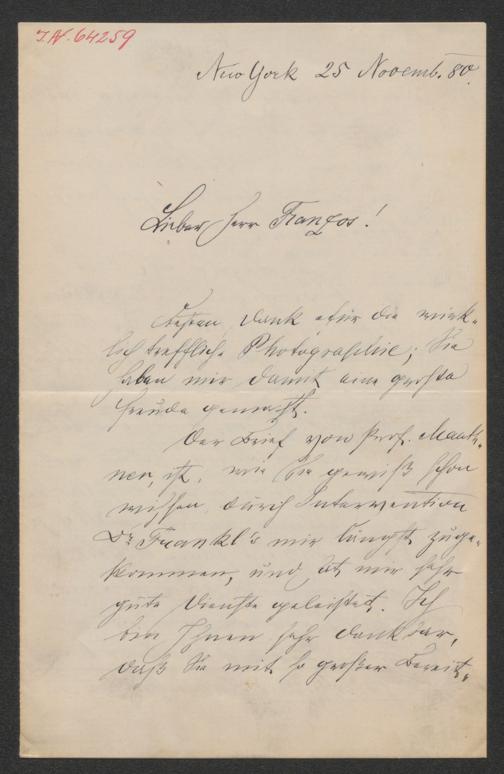 I.N. 64259
New York 25 Novemb. 80.
Lieber Herr Franzos!
Besten Dank für die wirk-
lich treffliche Photographie; Sie
haben mir damit eine große
Freude gemacht.
Der Brief von Prof.
ner, ist, wie Sie gewiß schon
wissen, durch Intervention
Dr Frankl's mir längst zuge-
kommen, und hat mir sehr
gute Dienste geleistet. Ich
bin Ihnen sehr dankbar,
daß Sie mit so großer Bereit-